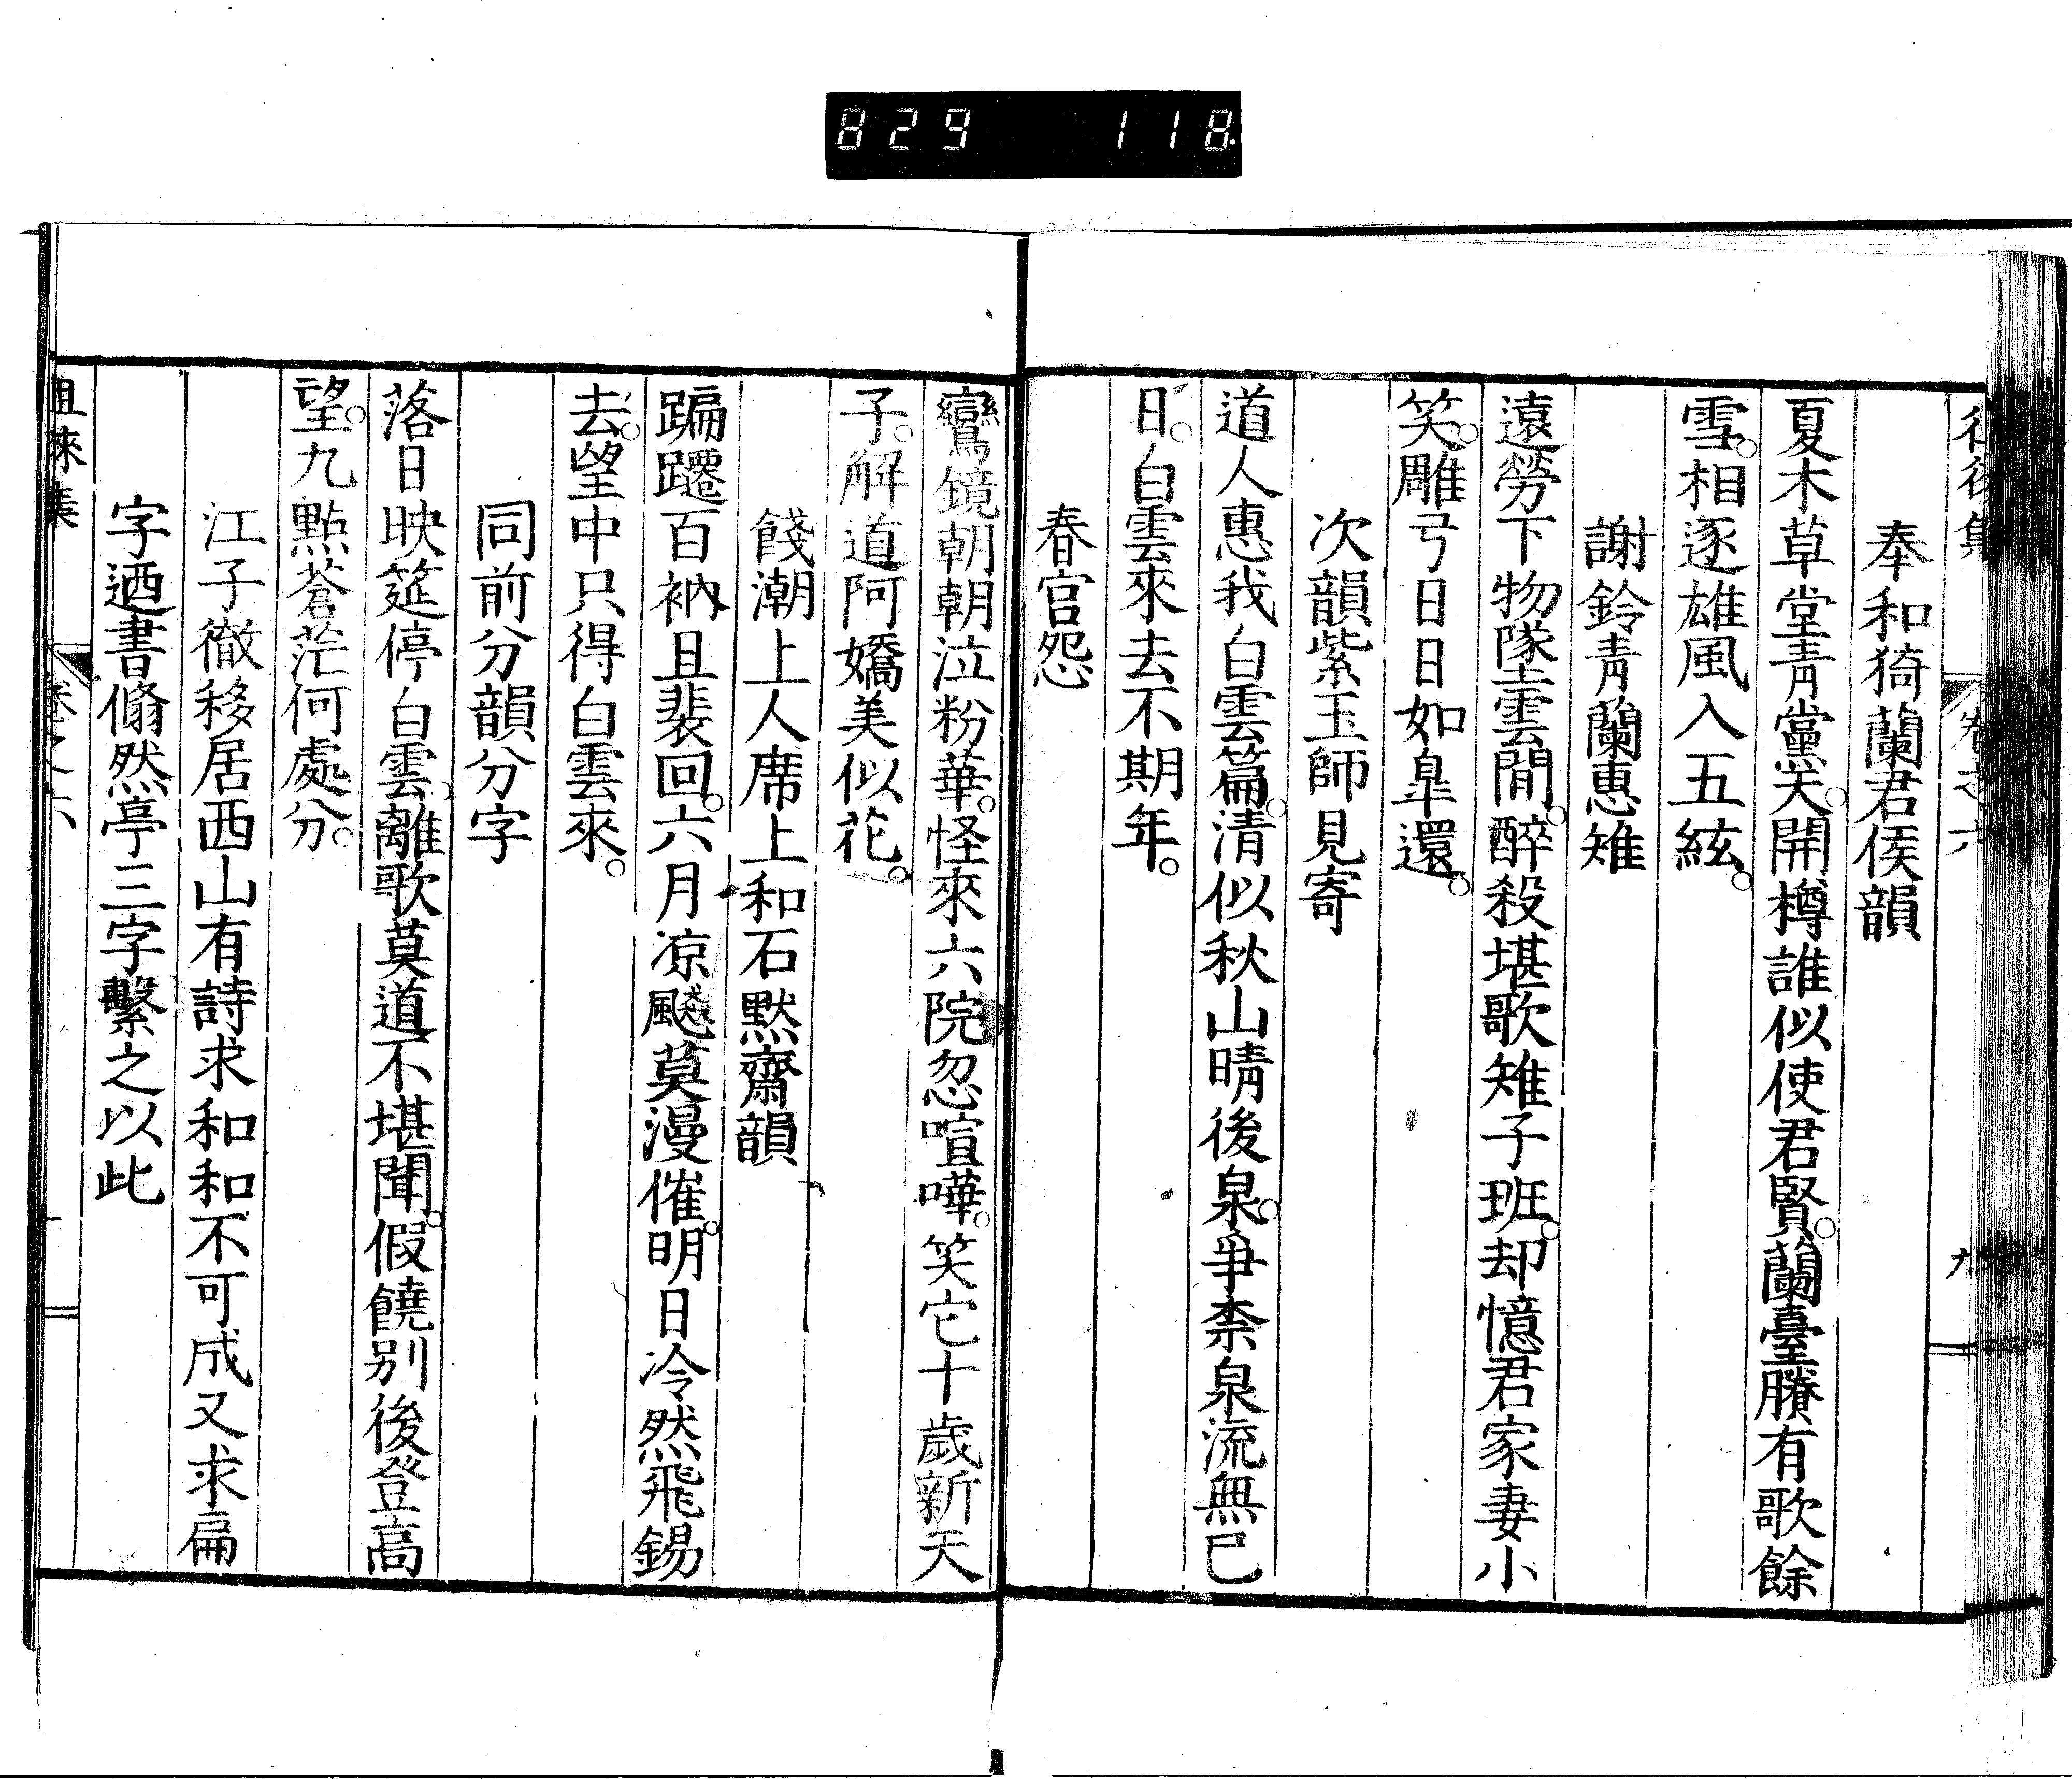 829 118.
奉和猗蘭君侯韻
夏木草堂青黨天。開樽誰似使君賢。蘭臺賸有歌餘
雪。相逐雄風入五絃。
謝鈴青蘭惠雉
遠勞下物墜雲間。醉殺堪歌雉子班。却憶君家妻小
笑。雕弓日日如皐還。
次韻紫玉師見寄
道人惠我白雲篇。清似秋山晴後泉。爭柰泉流無已
日。白雲來去不期年。
春宮怨
鸞鏡朝朝泣粉華。怪來六院忽喧嘩。笑它十歲新天
子。解道阿嬌美似花。
餞潮上人席上和石黙齋韻
蹁躚百衲且裴回。六月凉飈莫漫催。明日冷然飛錫
去。望中只得白雲來。
同前分韻分字
落日映筵停白雲。離歌莫道不堪聞。假饒別後登高
望。九點蒼茫何處分。
江子徹移居西山有詩求和和不可成又求扁
字迺書翛然亭三字繫之以此
徂徠集 卷之六